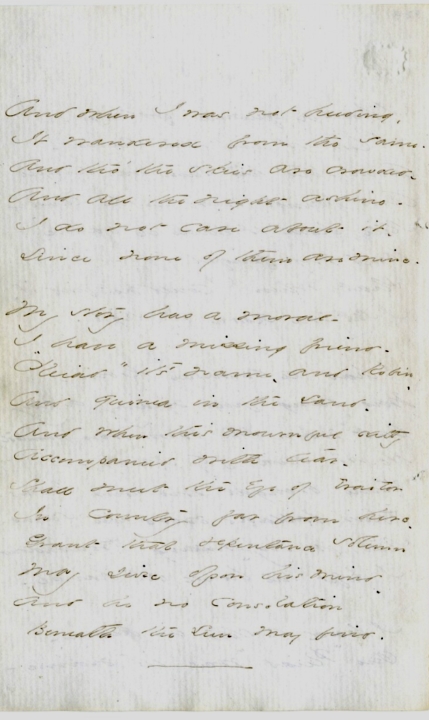 And when I was not heeding,
It wandered from the same.
And tho' the skies are crowded -
And all the night ashine -
I do not care about it -
Since none of them are mine.
My story has a moral -
I have a missing friend -
"Pleiad" it's name, and Robin,
And guinea in the sand.
And when this mournful ditty
Accompanied with tear -
Shall meet the eye of traitor
In country far from here -
Grant that repentance solemn
May seize upon his mind
And he no consolation
Beneath the sun may find.